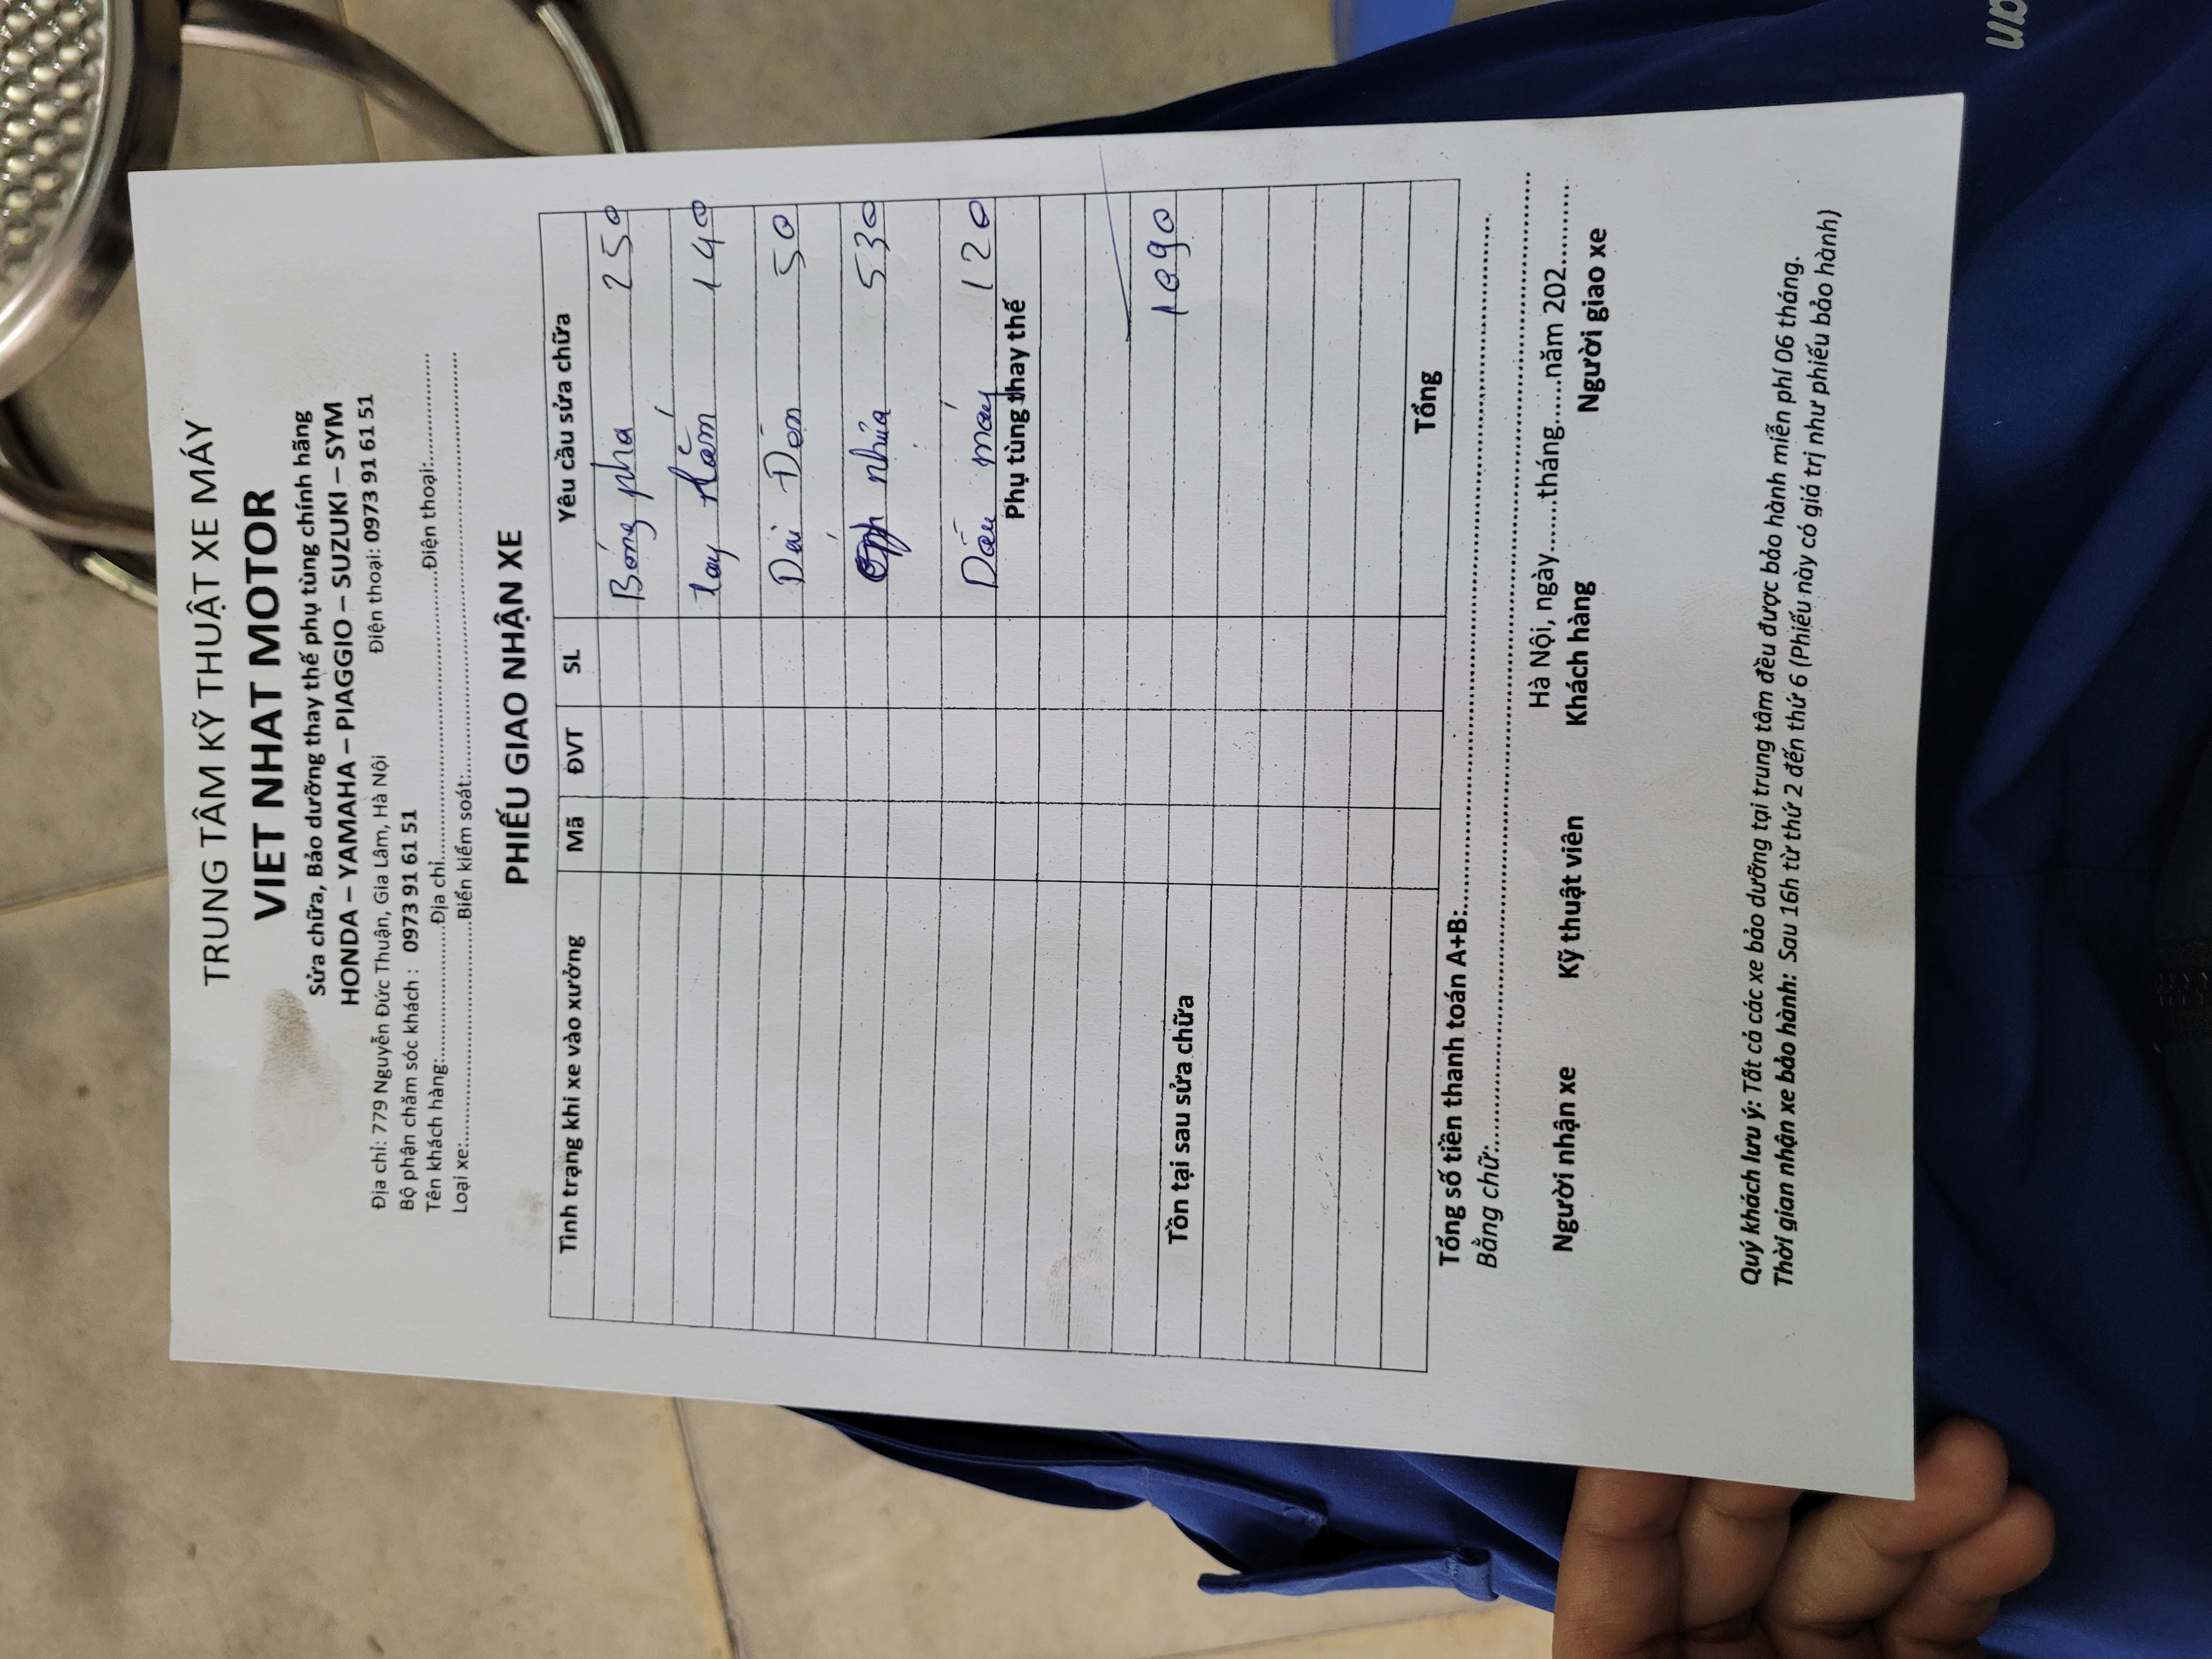 TRUNG TÂM KỸ THUẬT XE MÁY
VIET NHAT MOTOR
Sửa chữa, Bảo dưỡng thay thế phụ tùng chính hãng
HONDA – YAMAHA – PIAGGIO – SUZUKI – SYM
Địa chỉ: 779 Nguyễn Đức Thuận, Gia Lâm, Hà Nội Điện thoại: 0973 91 61 51
Bộ phận chăm sóc khách : 0973 91 61 51
Tên khách hàng:......................Địa chỉ................................................Điện thoại:..................
Loại xe:.....................................Biển kiểm soát:......................................................................
PHIẾU GIAO NHẬN XE
Tình trạng khi xe vào xưởng Mã ĐVT SL Yêu cầu sửa chữa
Bóng pha 250
tay nắm 140
Dai Đen 50
nhựa 530
Dầu máy 120
Phụ tùng thay thế
1090
Tồn tại sau sửa chữa
Tổng
Tổng số tiền thanh toán A+B:....................................................................................
Bằng chữ:....................................................................................................................
Hà Nội, ngày.......tháng......năm 202...........
Người nhận xe Kỹ thuật viên Khách hàng Người giao xe
Quý khách lưu ý: Tất cả các xe bảo dưỡng tại trung tâm đều được bảo hành miễn phí 06 tháng.
Thời gian nhận xe bảo hành: Sau 16h từ thứ 2 đến thứ 6 (Phiếu này có giá trị như phiếu bảo hành)